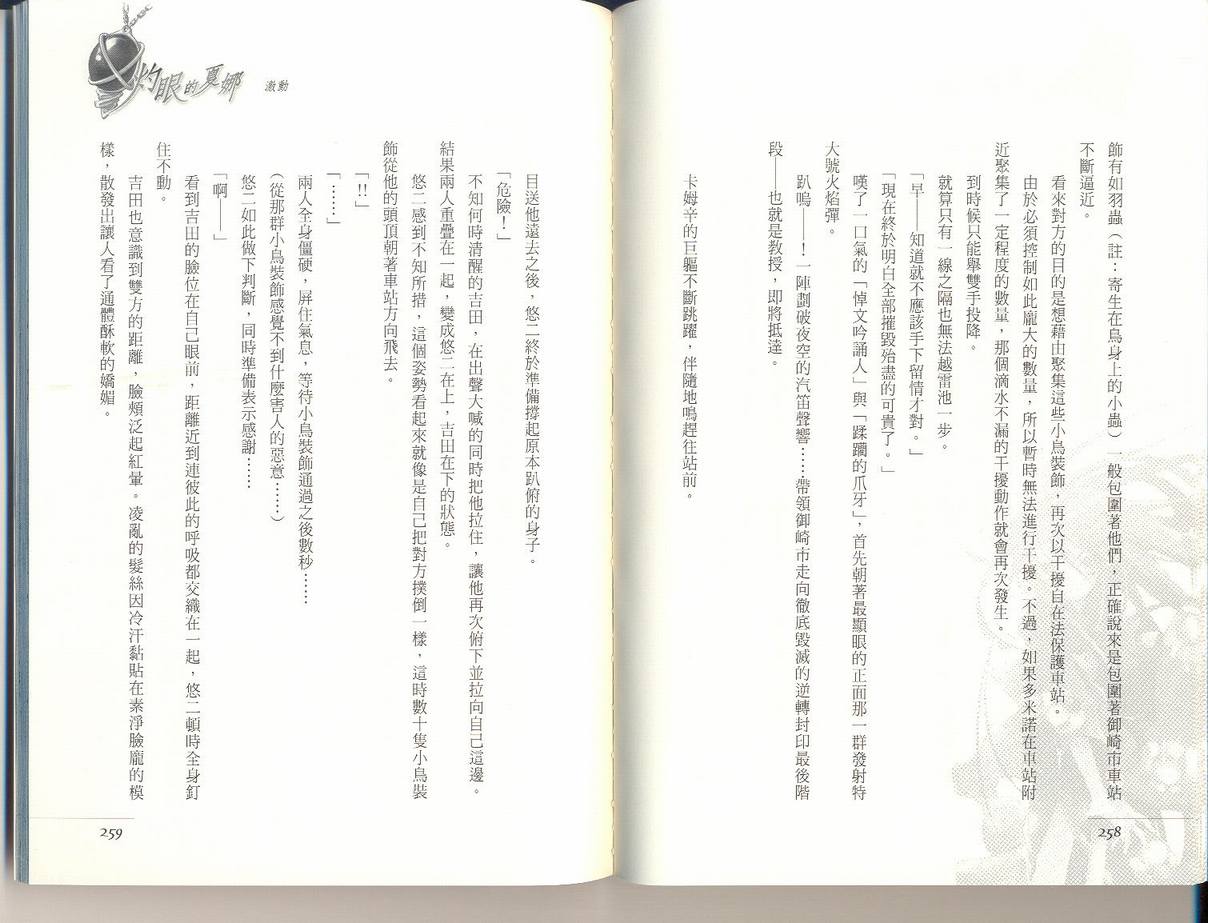 飾有如羽蟲（註：寄生在鳥身上的小蟲）一般包圍著他們，正確說來是包圍著御崎市車站
不斷逼近。
看來對方的目的是想藉由聚集這些小鳥裝飾，再次以干擾自在法保護車站。
由於必須控制如此龐大的數量，所以暫時無法進行干擾。不過，如果多米諾在車站附
近聚集了一定程度的數量，那個滴水不漏的干擾動作就會再次發生。
到時候只能舉雙手投降。
就算只有一線之隔也無法越雷池一步。
「早——知道就不應該手下留情才對。」
「現在終於明白全部摧毀殆盡的可貴了。」
嘆了一口氣的「悼文吟誦人」與「蹂躪的爪牙」，首先朝著最顯眼的正面那一群發射特
大號火焰彈。
趴嗚——！一陣劃破夜空的汽笛聲響……帶領御崎市走向徹底毀滅的逆轉封印最後階
段——也就是教授，即將抵達。
卡姆辛的巨軀不斷跳躍，伴隨地鳴趕往站前。
258
灼眼的夏娜 激動
目送他遠去之後，悠二終於準備撐起原本趴俯的身子。
「危險！」
不知何時清醒的吉田，在出聲大喊的同時把他拉住，讓他再次俯下並拉向自己這邊。
結果兩人重疊在一起，變成悠二在上，吉田在下的狀態。
悠二感到不知所措，這個姿勢看起來就像是自己把對方撲倒一樣，這時數十隻小鳥裝
飾從他的頭頂朝著車站方向飛去。
「!!」
「……」
兩人全身僵硬，屏住氣息，等待小鳥裝飾通過之後數秒……
（從那群小鳥裝飾感覺不到什麼害人的惡意……）
悠二如此做下判斷，同時準備表示感謝……
「啊——」
看到吉田的臉位在自己眼前，距離近到連彼此的呼吸都交織在一起，悠二頓時全身釘
住不動。
吉田也意識到雙方的距離，臉頰泛起紅暈。凌亂的髮絲因冷汗黏貼在素淨臉龐的模
樣，散發出讓人看了通體酥軟的嬌媚。
259